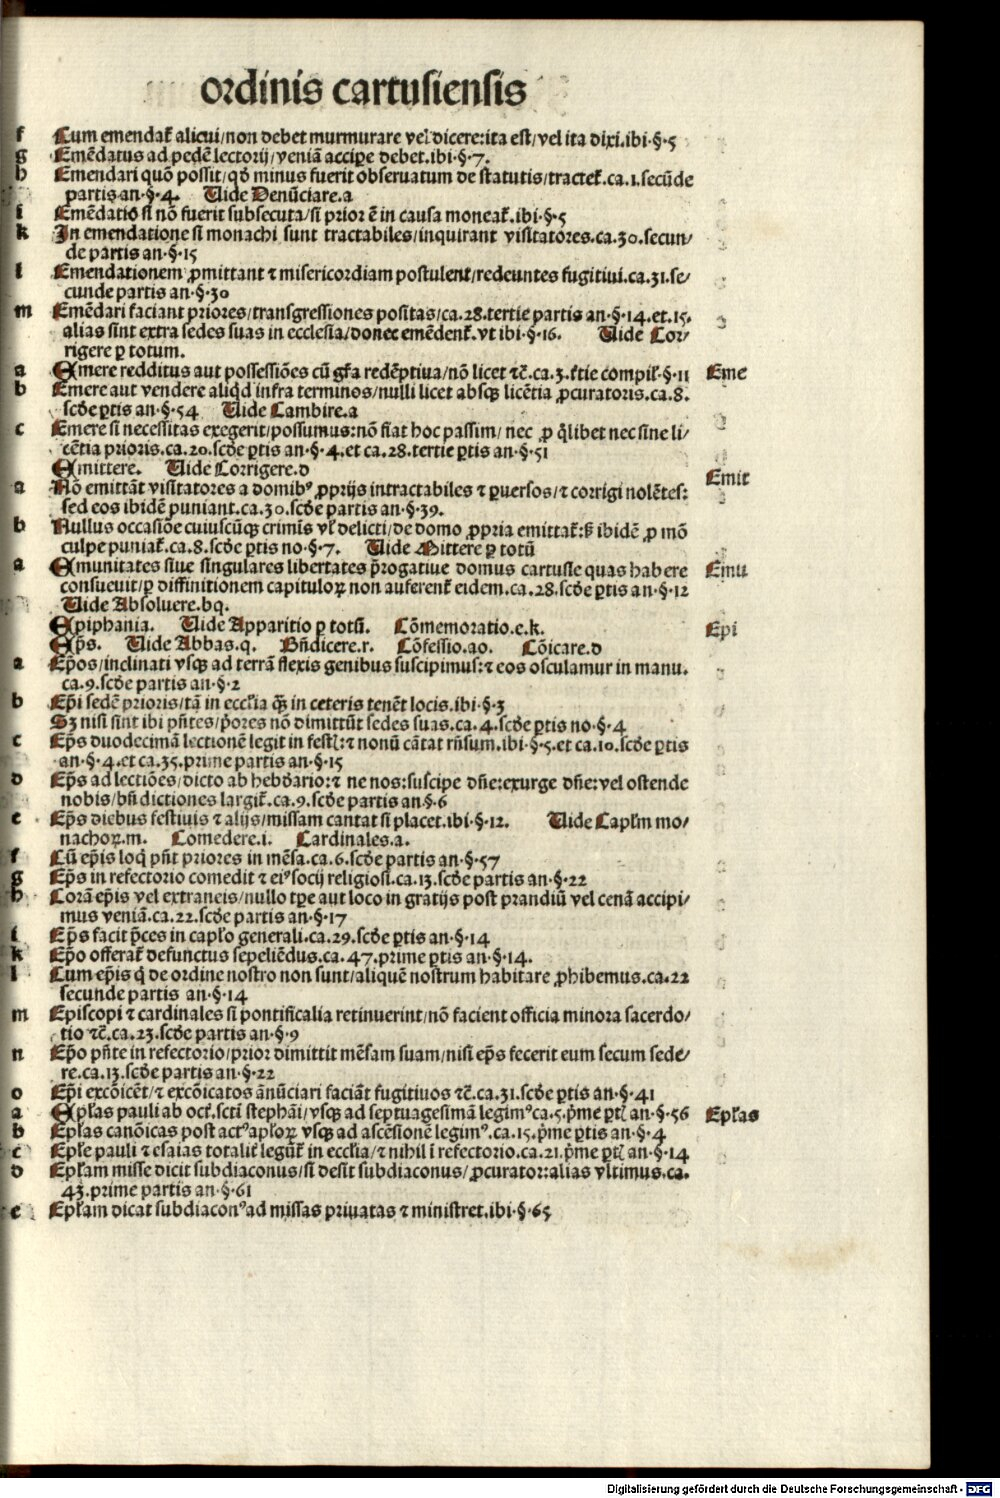 ordinis cartusiensis
f Cum emendat̃ alicui/non debet murmurare vel dicere:ita est/vel ita dixi.ibi·§·5
g Emẽdatus ad pedẽ lectorij/veniã accipe debet.ibi·§·7.
h Emendari quõ possit/qđ minus fuerit obseruatum de statutis/tractet̃.ca.1.secũde
partis an·§·4. Uide Denũciare.a
i Emẽdatio si nõ fuerit subsecuta/si prior ẽ in causa moneat̃.ibi·§·5
k In emendatione si monachi sunt tractabiles/inquirant visitatores.ca.30.secun/
de partis an·§·15
l Emendationem ꝓmittant ⁊ misericordiam postulent/redeuntes fugitiui.ca.31.se/
cunde partis an·§·30
m Emẽdari faciant priores/transgressiones positas/ca.28.tertie partis an·§·14.et.15.
alias sint extra sedes suas in ecclesia/donec emẽdent̃.vt ibi·§·16. Uide Cor/
rigere ꝑ totum.
a Emere redditus aut possessiões cũ gr̃a redẽptiua/nõ licet ⁊c̃.ca.3.t̃tie compil̃·§·11 Eme
b Emere aut vendere aliqd infra terminos/nulli licet absqꝫ licẽtia ꝓcuratoris.ca.8.
scđe ꝑtis an·§·54 Uide Cambire.a
c Emere si necessitas exegerit/possumus:nõ fiat hoc passim/ nec ꝓ qlibet nec sine li/
cẽtia prioris.ca.20.scđe ꝑtis an·§·4.et ca.28.tertie ꝑtis an·§·51
Emittere. Uide Corrigere.d Emit
a Nõ emittãt visitatores a domibꝰ ꝓprijs intractabiles ⁊ ꝑuersos/⁊ corrigi nolẽtes:
sed eos ibidẽ puniant.ca.30.scđe partis an·§·39.
b Nullus occasiõe cuiuscũqꝫ crimĩs vł delicti/de domo ꝓpria emittat̃:ꞩ ibidẽ ꝓ mõ
culpe puniat̃.ca.8.scđe ꝑtis no·§·7. Uide Mittere ꝑ totũ
a Emunitates siue singulares libertates p̃rogatiue domus cartusie quas habere Emu
consueuit/ꝑ diffinitionem capituloꝝ non auferent̃ eidem.ca.28.scđe ꝑtis an·§·12
Uide Absoluere.bq.
Epiphania. Uide Apparitio ꝑ totũ. Cõmemoratio.e.k. Epi
Ep̃s. Uide Abbas.q. Bñdicere.r. Cõfessio.ao. Cõicare.d
a Ep̃os/inclinati vsqꝫ ad terrã flexis genibus suscipimus:⁊ eos osculamur in manu.
ca.9.scđe partis an·§·2
b Ep̃i sedẽ prioris/tã in eccłia qꝫ in ceteris tenẽt locis.ibi·§·3
Sꝫ nisi sint ibi pñtes/p̃ores nõ dimittũt sedes suas.ca.4.scđe ꝑtis no·§·4
c Ep̃s duodecimã lectionẽ legit in festꝭ:⁊ nonũ cãtat rñsum.ibi·§·5.et ca.10.scđe ꝑtis
an·§·4.et ca.35.prime partis an·§·15
d Ep̃s ad lectiões/dicto ab hebđario:⁊ ne nos:suscipe dñe:exurge dñe:vel ostende
nobis/bñdictiones largit̃.ca.9.scđe partis an·§·6
e Ep̃s diebus festiuis ⁊ alijs/missam cantat si placet.ibi·§·12. Uide Capłm mo/
nachoꝝ.m. Comedere.i. Cardinales.a.
f Cũ ep̃is loq̃ pñt priores in mẽsa.ca.6.scđe partis an·§·57
g Ep̃s in refectorio comedit ⁊ eiꝰ socij religiosi.ca.13.scđe partis an·§·22
h Corã ep̃is vel extraneis/nullo tp̃e aut loco in gratijs post prandiũ vel cenã accipi/
mus veniã.ca.22.scđe partis an·§·17
i Ep̃s facit p̃ces in capło generali.ca.29.scđe ꝑtis an·§·14
k Ep̃o offerat̃ defunctus sepeliẽdus.ca.47.prime ꝑtis an·§·14.
l Cum ep̃is q̃ de ordine nostro non sunt/aliquẽ nostrum habitare ꝓhibemus.ca.22
secunde partis an·§·14
m Episcopi ⁊ cardinales si pontificalia retinuerint/nõ facient officia minora sacerdo/
tio ⁊c̃.ca.23.scđe partis an·§·9
n Ep̃o pñte in refectorio/prior dimittit mẽsam suam/nisi ep̃s fecerit eum secum sede/
re.ca.13.scđe partis an·§·22
o Ep̃i excõicẽt/⁊ excõicatos ãnũciari faciãt fugitiuos ⁊c̃.ca.31.scđe ꝑtis an·§·41
a Epłas pauli ab oct̃.scti stephãi/vsqꝫ ad septuagesimã legimꝰ ca.5.p̃me ꝑtꝭ an·§·56 Epłas
b Epłas canõicas post actꝰ apłoꝝ vsqꝫ ad ascẽsionẽ legimꝰ.ca.15.p̃me ꝑtis an·§·4
c Epłe pauli ⁊ esaias totalit̃ legũt̃ in eccłia/⁊ nihil ĩ refectorio.ca.21.p̃me ꝑtꝭ an·§·14
d Epłam misse dicit subdiaconus/si desit subdiaconus/ꝓcurator:alias vltimus.ca.
43.prime partis an·§·61
e Epłam dicat subdiaconꝰ ad missas priuatas ⁊ ministret.ibi·§·65
Digitalisierung gefördert durch die Deutsche Forschungsgemeinschaft - DFG